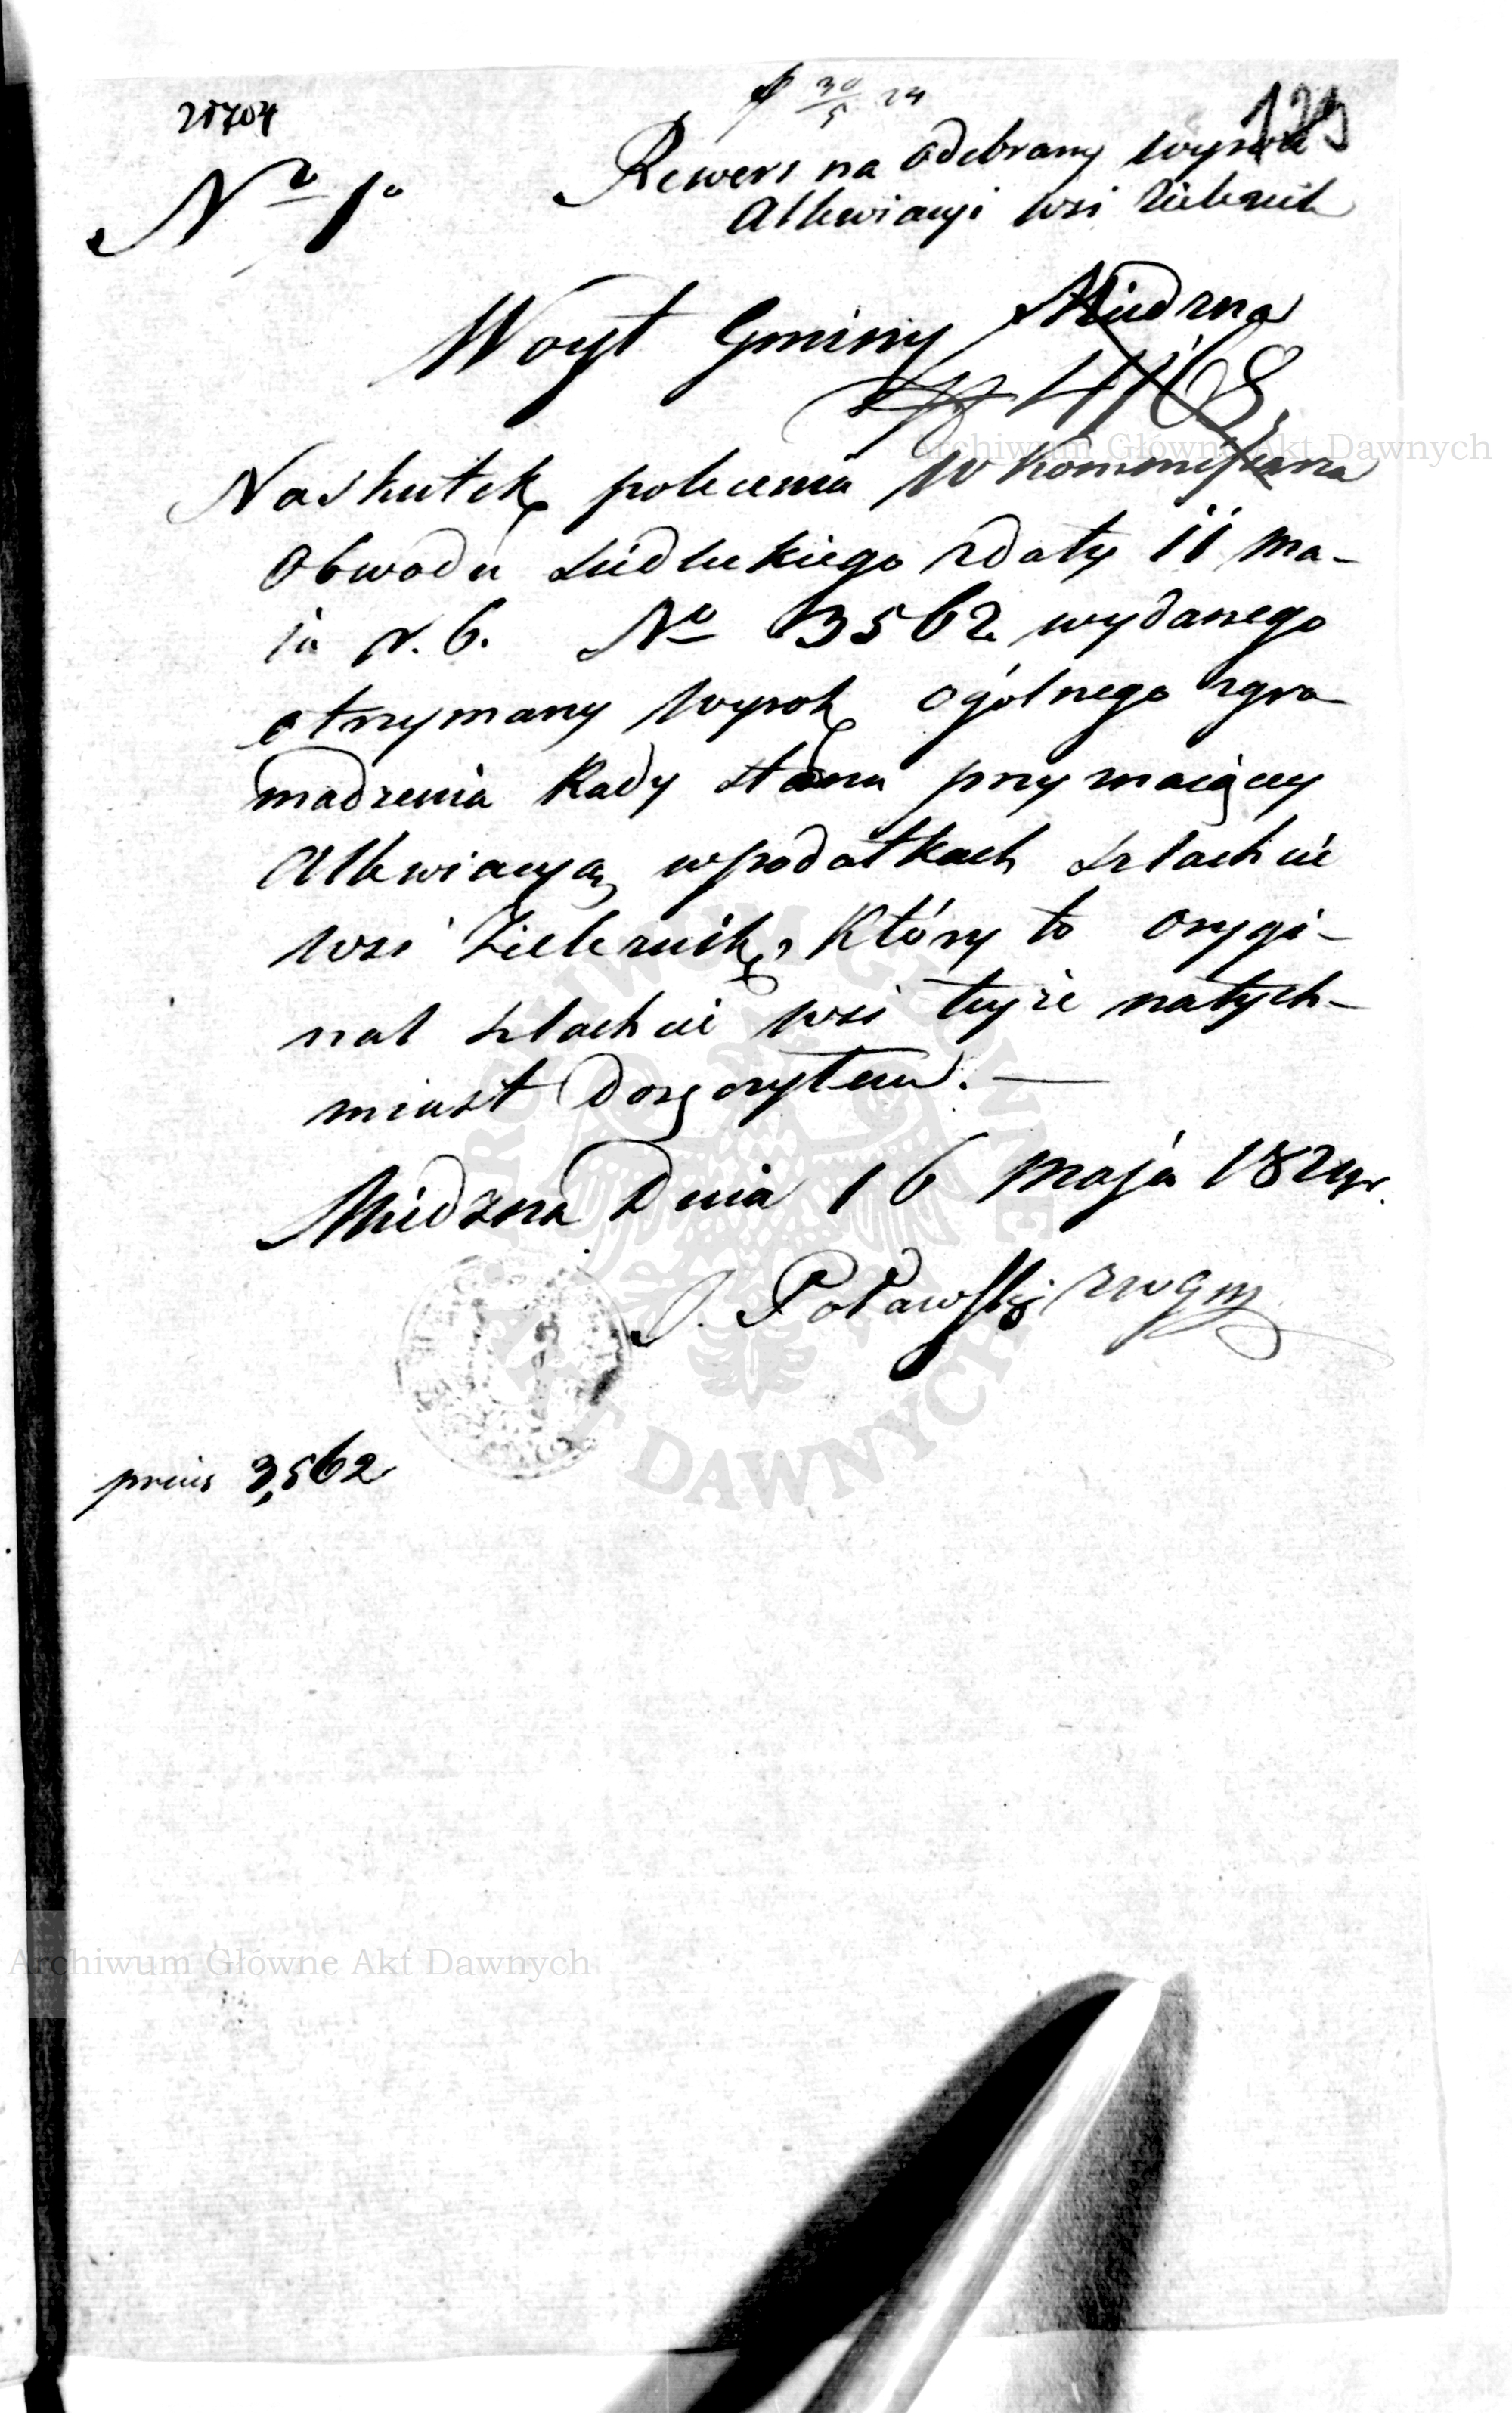 28704
30/5 24
129
Nro 1o
Rewers na odebrany wyrok
Allewiacyi wsi Zieleznik
Woyt Gminy Miedzna
4168
Archiwum Główne Akt Dawnych
Naskutek polecenia W Kommissarza
Obwodu Siedleckiego zdaty 11 ma-
ja r. b. No 3562 wydanego
otrzymany wyrok ogólnego zgro
madzenia Rady Stanu przymaiącey
Allewiacyą wpodatkach szlachcie
wsi Zieleznik, który to orygi-
nał szlachcie wsi teyże natych-
miast doręczyłem. —
Miedzna Dnia 16 maja 1824r.
J. Poławski zwgm
ARCHIWUM GŁÓWNE AKT DAWNYCH
prius 3,562
Archiwum Główne Akt Dawnych